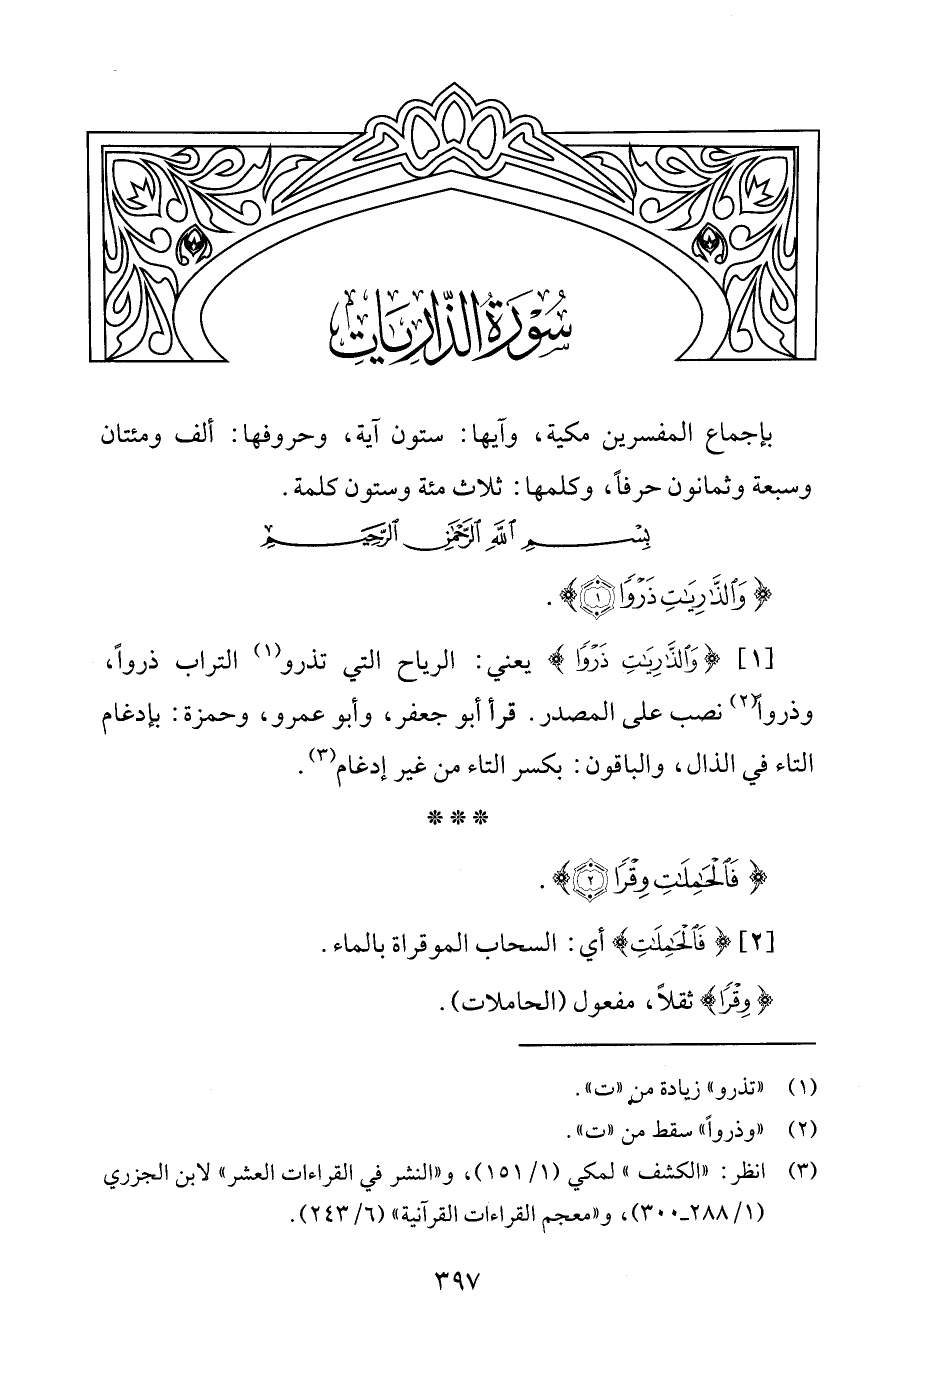 سُورَةُ الذَّارِيَاتِ
بإجماع المفسرين مكية، وآيها: ستون آية، وحروفها: ألف ومئتان
وسبعة وثمانون حرفاً، وكلمها: ثلاث مئة وستون كلمة.
بِسْمِ ٱللَّهِ ٱلرَّحْمَٰنِ ٱلرَّحِيمِ
﴿ وَٱلذَّٰرِيَٰتِ ذَرْوًا ۝١ ﴾.
[١] ﴿ وَٱلذَّٰرِيَٰتِ ذَرْوًا ﴾ يعني: الرياح التي تذرو(١) التراب ذرواً،
وذرواً(٢) نصب على المصدر. قرأ أبو جعفر، وأبو عمرو، وحمزة: بإدغام
التاء في الذال، والباقون: بكسر التاء من غير إدغام(٣).
* * *
﴿ فَٱلْحَٰمِلَٰتِ وِقْرًا ۝٢ ﴾.
[٢] ﴿ فَٱلْحَٰمِلَٰتِ ﴾ أي: السحاب الموقراة بالماء.
﴿ وِقْرًا ﴾ ثقلاً، مفعول (الحاملات).
(١) «تذرو» زيادة من «ت».
(٢) «وذرواً» سقط من «ت».
(٣) انظر: «الكشف» لمكي (١/ ١٥١)، و«النشر في القراءات العشر» لابن الجزري
(١/ ٢٨٨ـ٣٠٠)، و«معجم القراءات القرآنية» (٦/ ٢٤٣).
٣٩٧